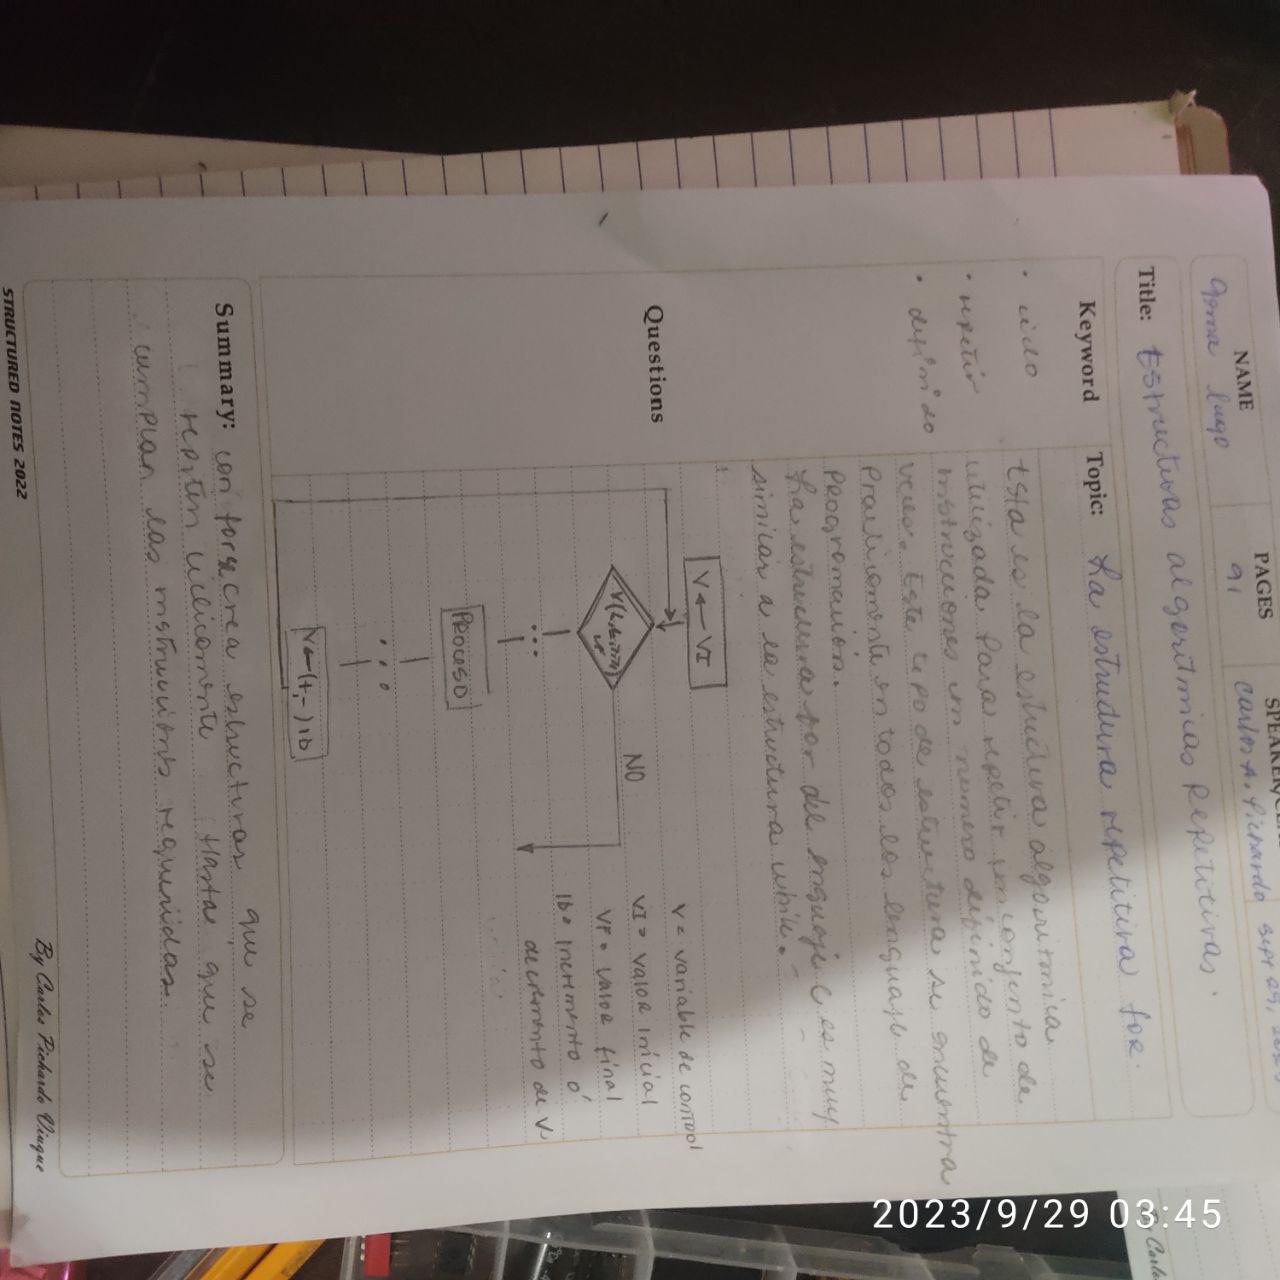 NAME
PAGES
Gema Lugo
91
Carlos A. Pichardo
Title: Estructuras algoritmicas Repetitivas.
Keyword
Topic: La estructura repetitiva for.
• ciclo
• repetir
• definido
Esta es la estructura algoritmica
utilizada Para repetir un conjunto de
instrucciones un numero definido de
veces. Este tipo de estructura se encuentra
Practicamente en todos los lenguajes de
Programacion.
La estructura for del lenguaje C es muy
similar a la estructura while.
Questions
V ← VI
NO
PROCESO
V ← (+,-) ib
V = variable de control
VI = valor inicial
VF = valor final
ib = incremento ó
decremento de V
Summary: con for se crea estructuras que se
repiten ciclicamente Hasta que se
cumplan las instrucciones requeridas.
STRUCTURED NOTES 2022
By Carlos Pichardo Viuque
2023/9/29 03:45